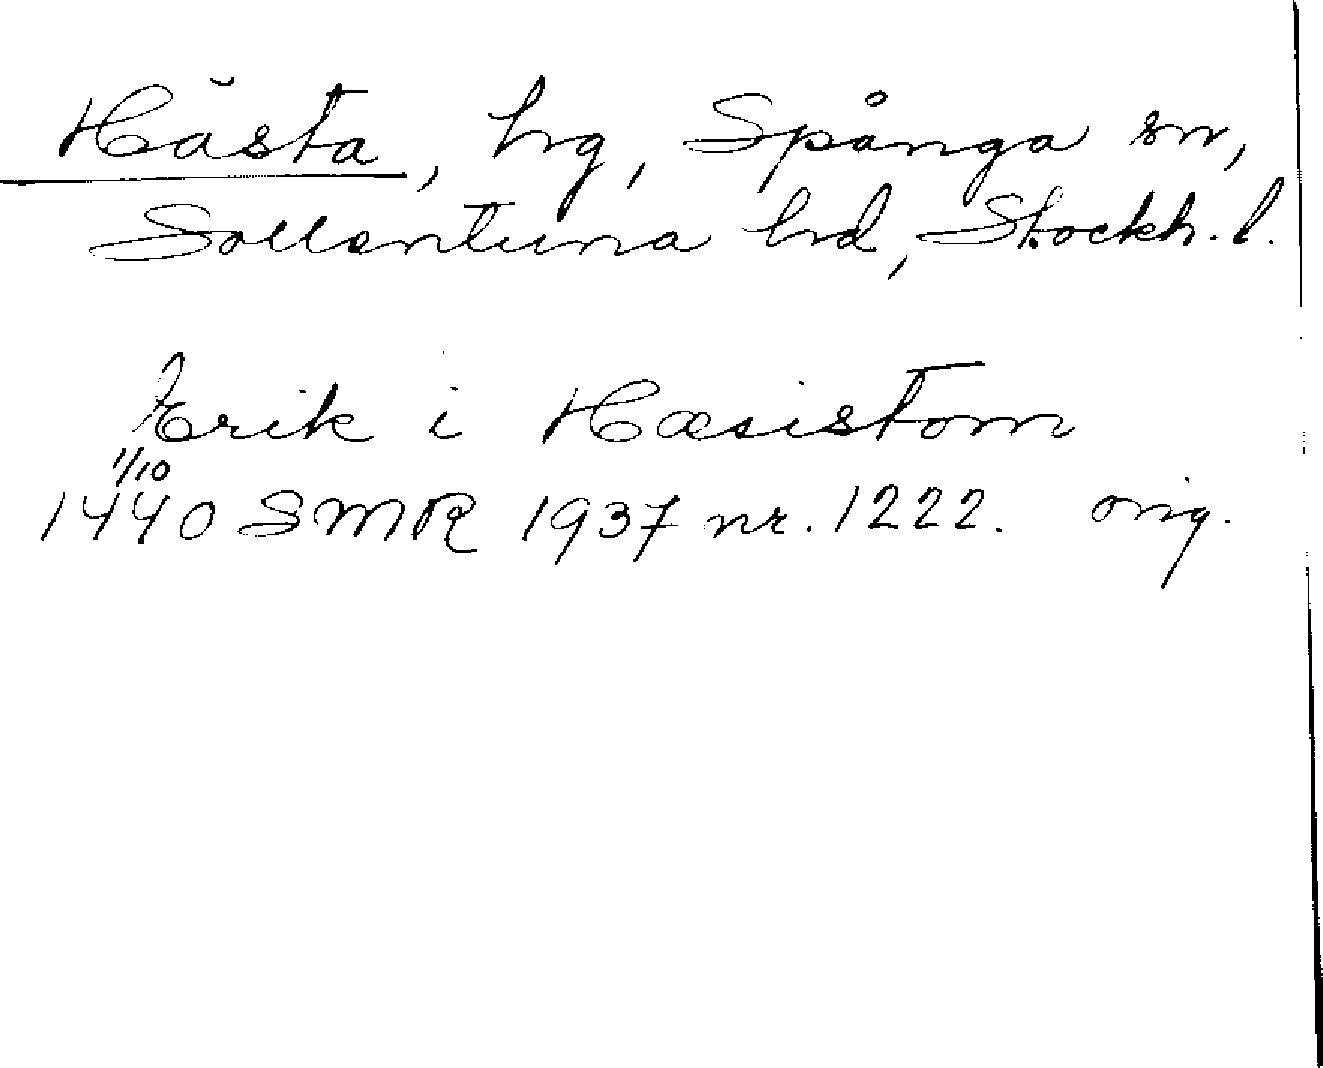 Hästa, hg, Spånga sn,
Sollentuna hd, Stockh. l.
Erik i Hæsistom
1/10
1440 SMR 1937 nr. 1222. orig.